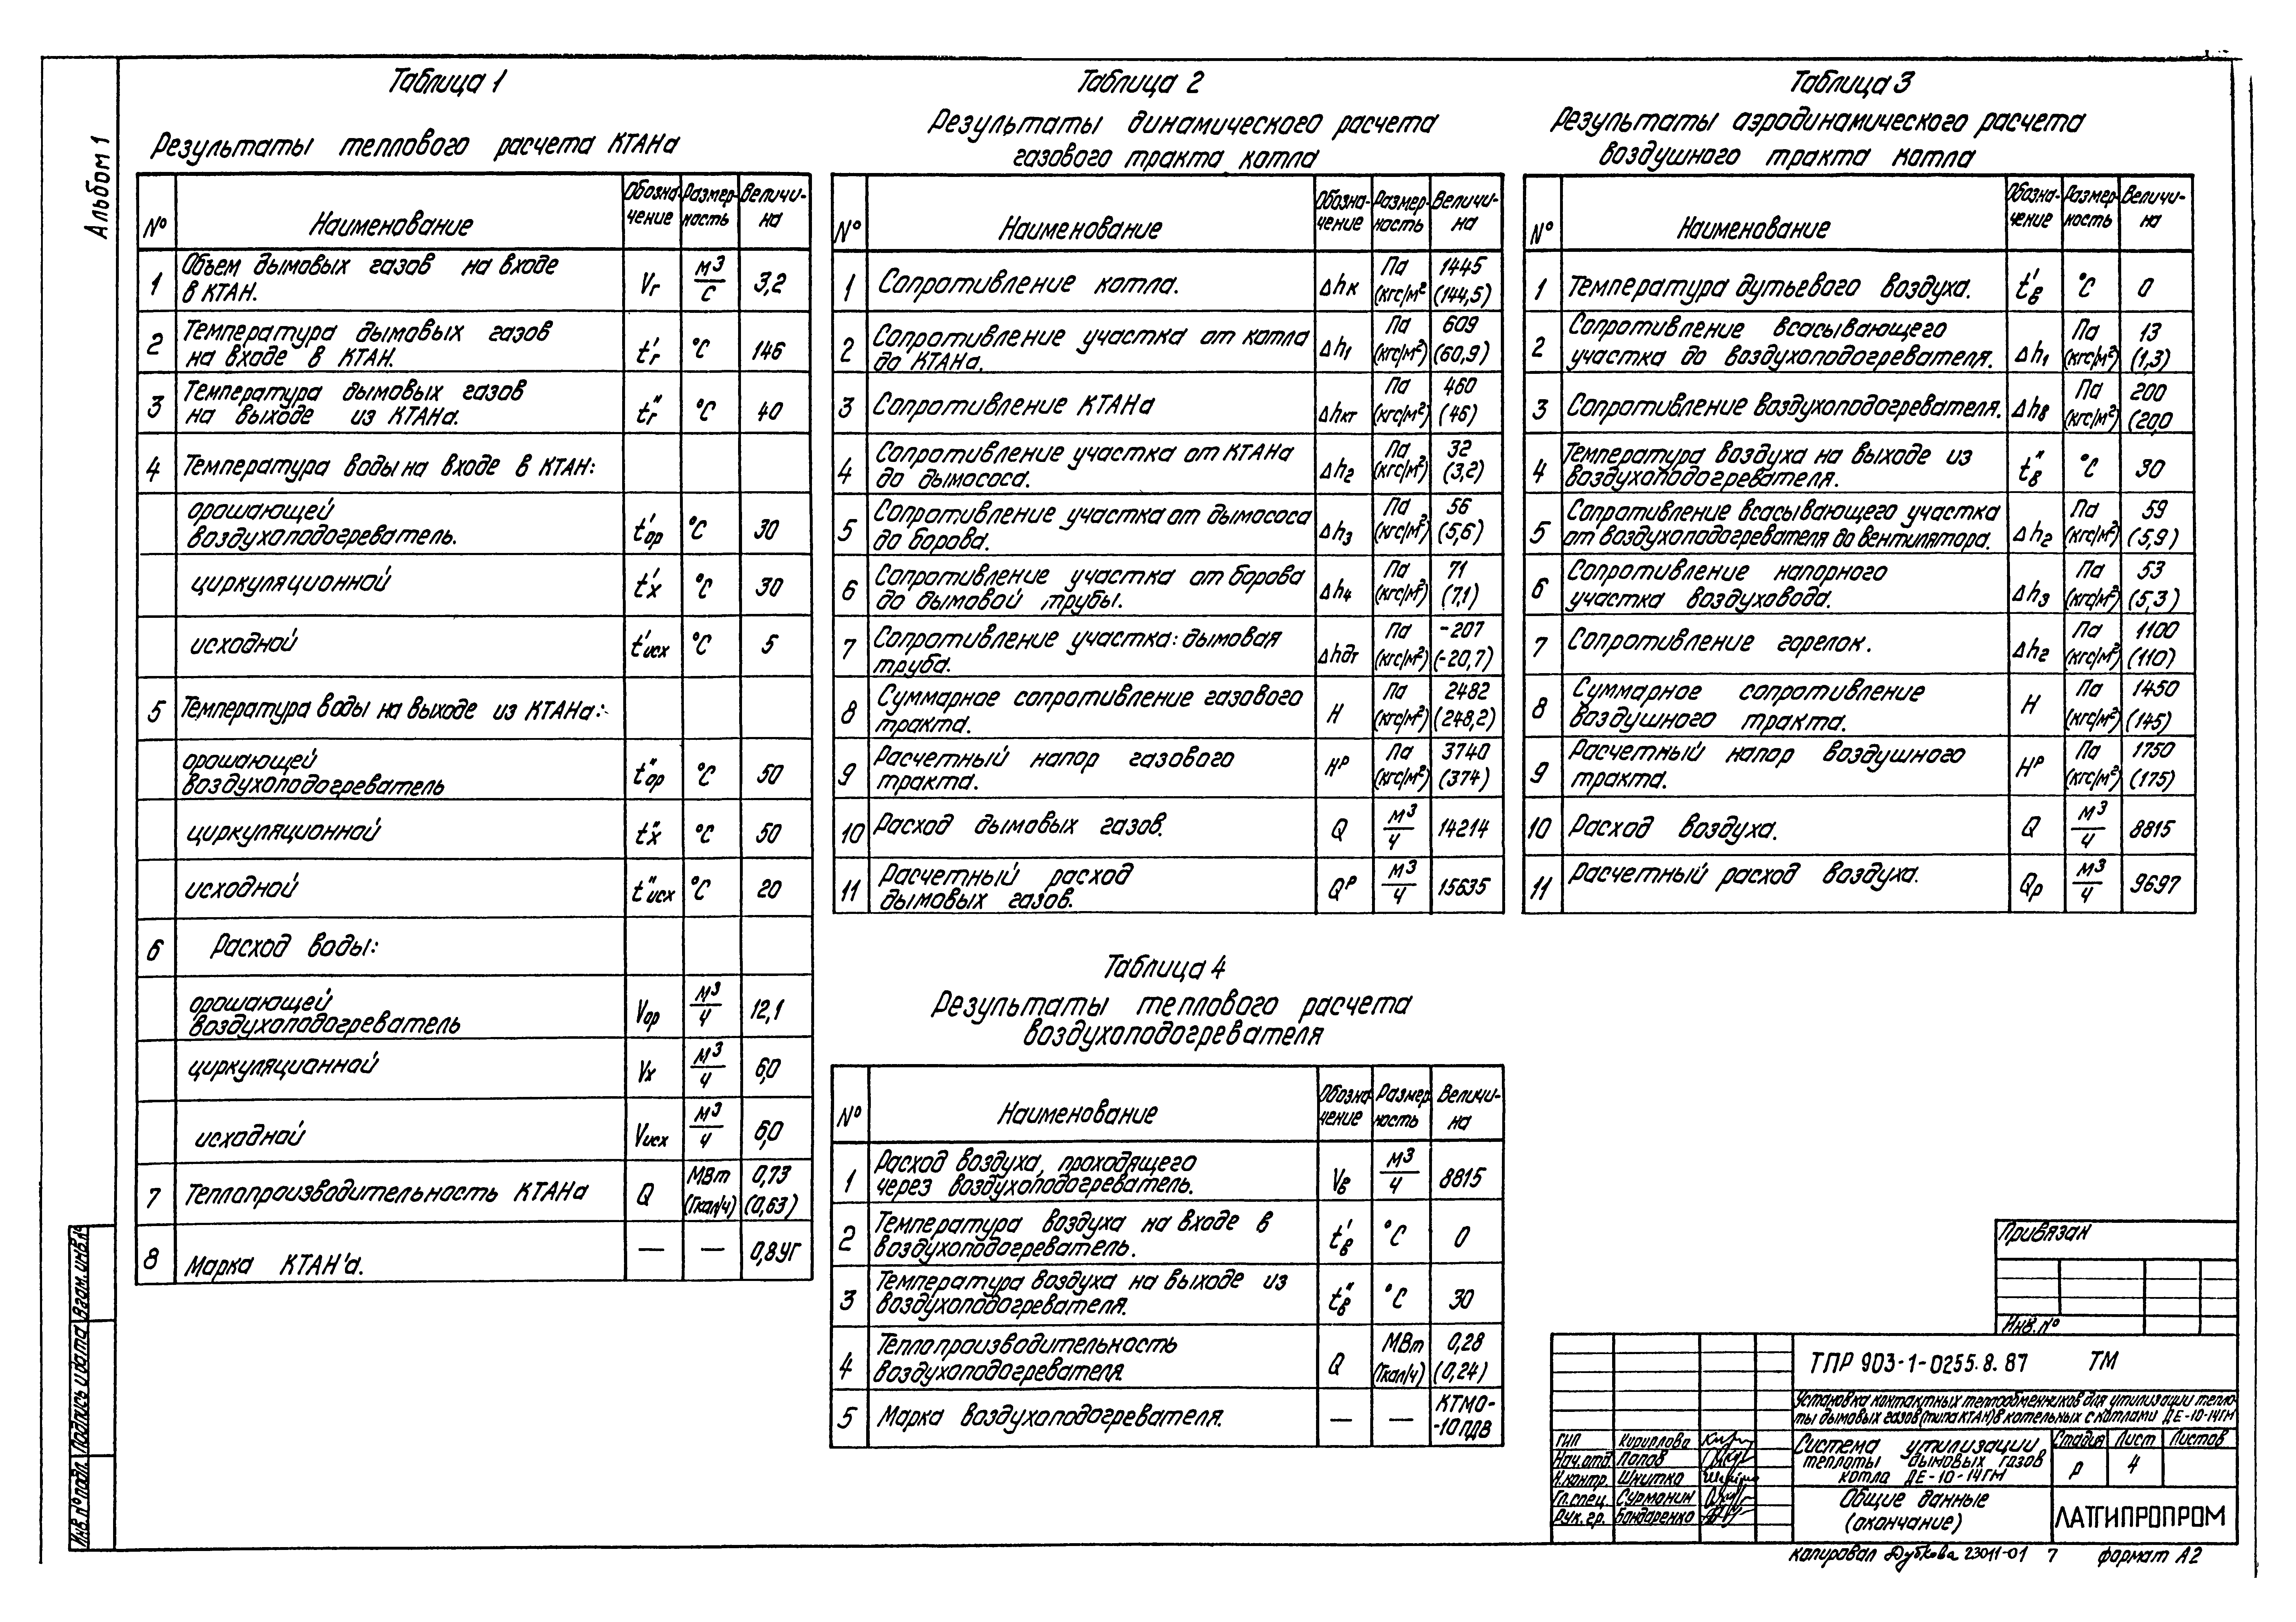 Альбом 1
Таблица 1
Результаты теплового расчета КТАНа
№ Наименование Обозна-чение Размер-ность Величи-на
1 Объем дымовых газов на входе в КТАН. Vг м³/с 3,2
2 Температура дымовых газов на входе в КТАН. t'г °С 146
3 Температура дымовых газов на выходе из КТАНа. t"г °С 40
4 Температура воды на входе в КТАН:
орошающей воздухоподогреватель. t'ор °С 30
циркуляционной t'х °С 30
исходной t'исх °С 5
5 Температура воды на выходе из КТАНа:
орошающей воздухоподогреватель t"ор °С 50
циркуляционной t"х °С 50
исходной t"исх °С 20
6 Расход воды:
орошающей воздухоподогреватель Vор м³/ч 12,1
циркуляционной Vх м³/ч 6,0
исходной Vисх м³/ч 6,0
7 Теплопроизводительность КТАНа Q МВт (Гкал/ч) 0,73 (0,63)
8 Марка КТАН'а. — — 0,8УГ
Таблица 2
Результаты динамического расчета
газового тракта котла
№ Наименование Обозна-чение Размер-ность Величи-на
1 Сопротивление котла. Δhк Па (кгс/м² 1445 (144,5)
2 Сопротивление участка от котла до КТАНа. Δh1 Па (кгс/м²) 609 (60,9)
3 Сопротивление КТАНа Δhкт Па (кгс/м²) 460 (46)
4 Сопротивление участка от КТАНа до дымососа. Δh2 Па (кгс/м²) 32 (3,2)
5 Сопротивление участка от дымососа до борова. Δh3 Па (кгс/м²) 56 (5,6)
6 Сопротивление участка от борова до дымовой трубы. Δh4 Па (кгс/м²) 71 (7,1)
7 Сопротивление участка: дымовая труба. Δhдт Па (кгс/м²) -207 (-20,7)
8 Суммарное сопротивление газового тракта. Н Па (кгс/м²) 2482 (248,2)
9 Расчетный напор газового тракта. Нᵖ Па (кгс/м²) 3740 (374)
10 Расход дымовых газов. Q м³/ч 14214
11 Расчетный расход дымовых газов. Qᵖ м³/ч 15635
Таблица 3
Результаты аэродинамического расчета
воздушного тракта котла
№ Наименование Обозна-чение Размер-ность Величи-на
1 Температура дутьевого воздуха. t'в °С 0
2 Сопротивление всасывающего участка до воздухоподогревателя. Δh1 Па (кгс/м²) 13 (1,3)
3 Сопротивление воздухоподогревателя. Δhв Па (кгс/м²) 200 (20,0
4 Температура воздуха на выходе из воздухоподогревателя. t"в °С 30
5 Сопротивление всасывающего участка от воздухоподогревателя до вентилятора. Δh2 Па (кгс/м²) 59 (5,9)
6 Сопротивление напорного участка воздуховода. Δh3 Па (кгс/м²) 53 (5,3)
7 Сопротивление горелок. Δhг Па (кгс/м²) 1100 (110)
8 Суммарное сопротивление воздушного тракта. Н Па (кгс/м²) 1450 (145)
9 Расчетный напор воздушного тракта. Нᵖ Па (кгс/м²) 1750 (175)
10 Расход воздуха. Q м³/ч 8815
11 Расчетный расход воздуха. Qр м³/ч 9697
Таблица 4
Результаты теплового расчета
воздухоподогревателя
№ Наименование Обозна-чение Размер-ность Величи-на
1 Расход воздуха, проходящего через воздухоподогреватель. Vв м³/ч 8815
2 Температура воздуха на входе в воздухоподогреватель. t'в °С 0
3 Температура воздуха на выходе из воздухоподогревателя. t"в °С 30
4 Теплопроизводительность воздухоподогревателя Q МВт (Гкал/ч) 0,28 (0,24)
5 Марка воздухоподогревателя. — — КТМО--10ПДВ
Привязан
Инв.№
ТПР 903-1-0255.8.87 ТМ
Установка контактных теплообменников для утилизации тепло-
ты дымовых газов (типа КТАН) в котельных с котлами ДЕ-10-14ГМ
ГИП Кириллова
Нач.отд. Попов
Н.контр. Шкитка
Гл.спец. Сурманин
Рук.гр. Бондаренко
Система утилизации
теплоты дымовых газов
котла ДЕ-10-14ГМ
Стадия Лист Листов
Р 4
Общие данные
(окончание)
ЛАТГИПРОПРОМ
Копировал Дубкова 23011-01 7 формат А2
Взам.инв.№
Подпись и дата
Инв.№ подл.